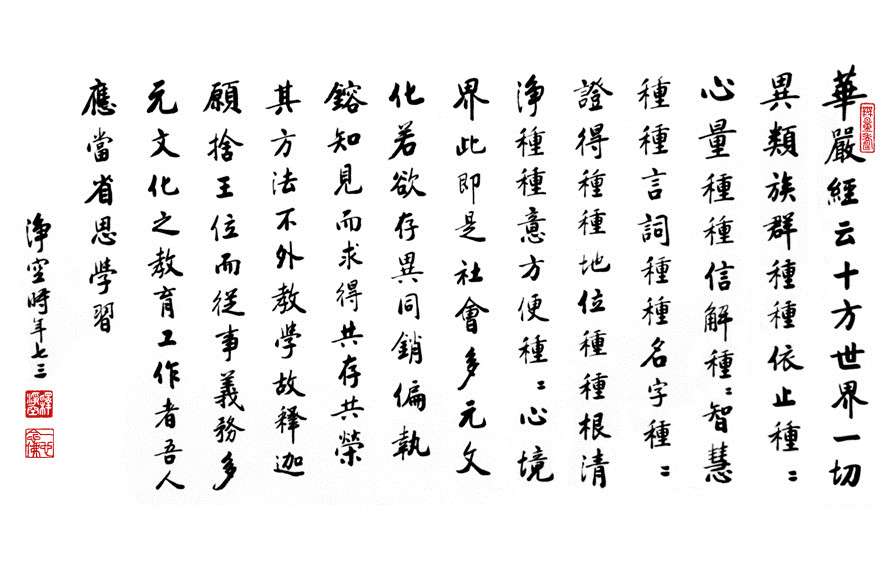 華嚴經云十方世界一切
異類族群種種依止種〻
心量種種信解種〻智慧
種種言詞種種名字種〻
證得種種地位種種根清
淨種種意方便種〻心境
界此即是社會多元文
化若欲存異同銷偏執
鎔知見而求得共存共榮
其方法不外教學故釋迦
願捨王位而從事義務多
元文化之教育工作者吾人
應當省思學習
淨空時年七三
一心念佛